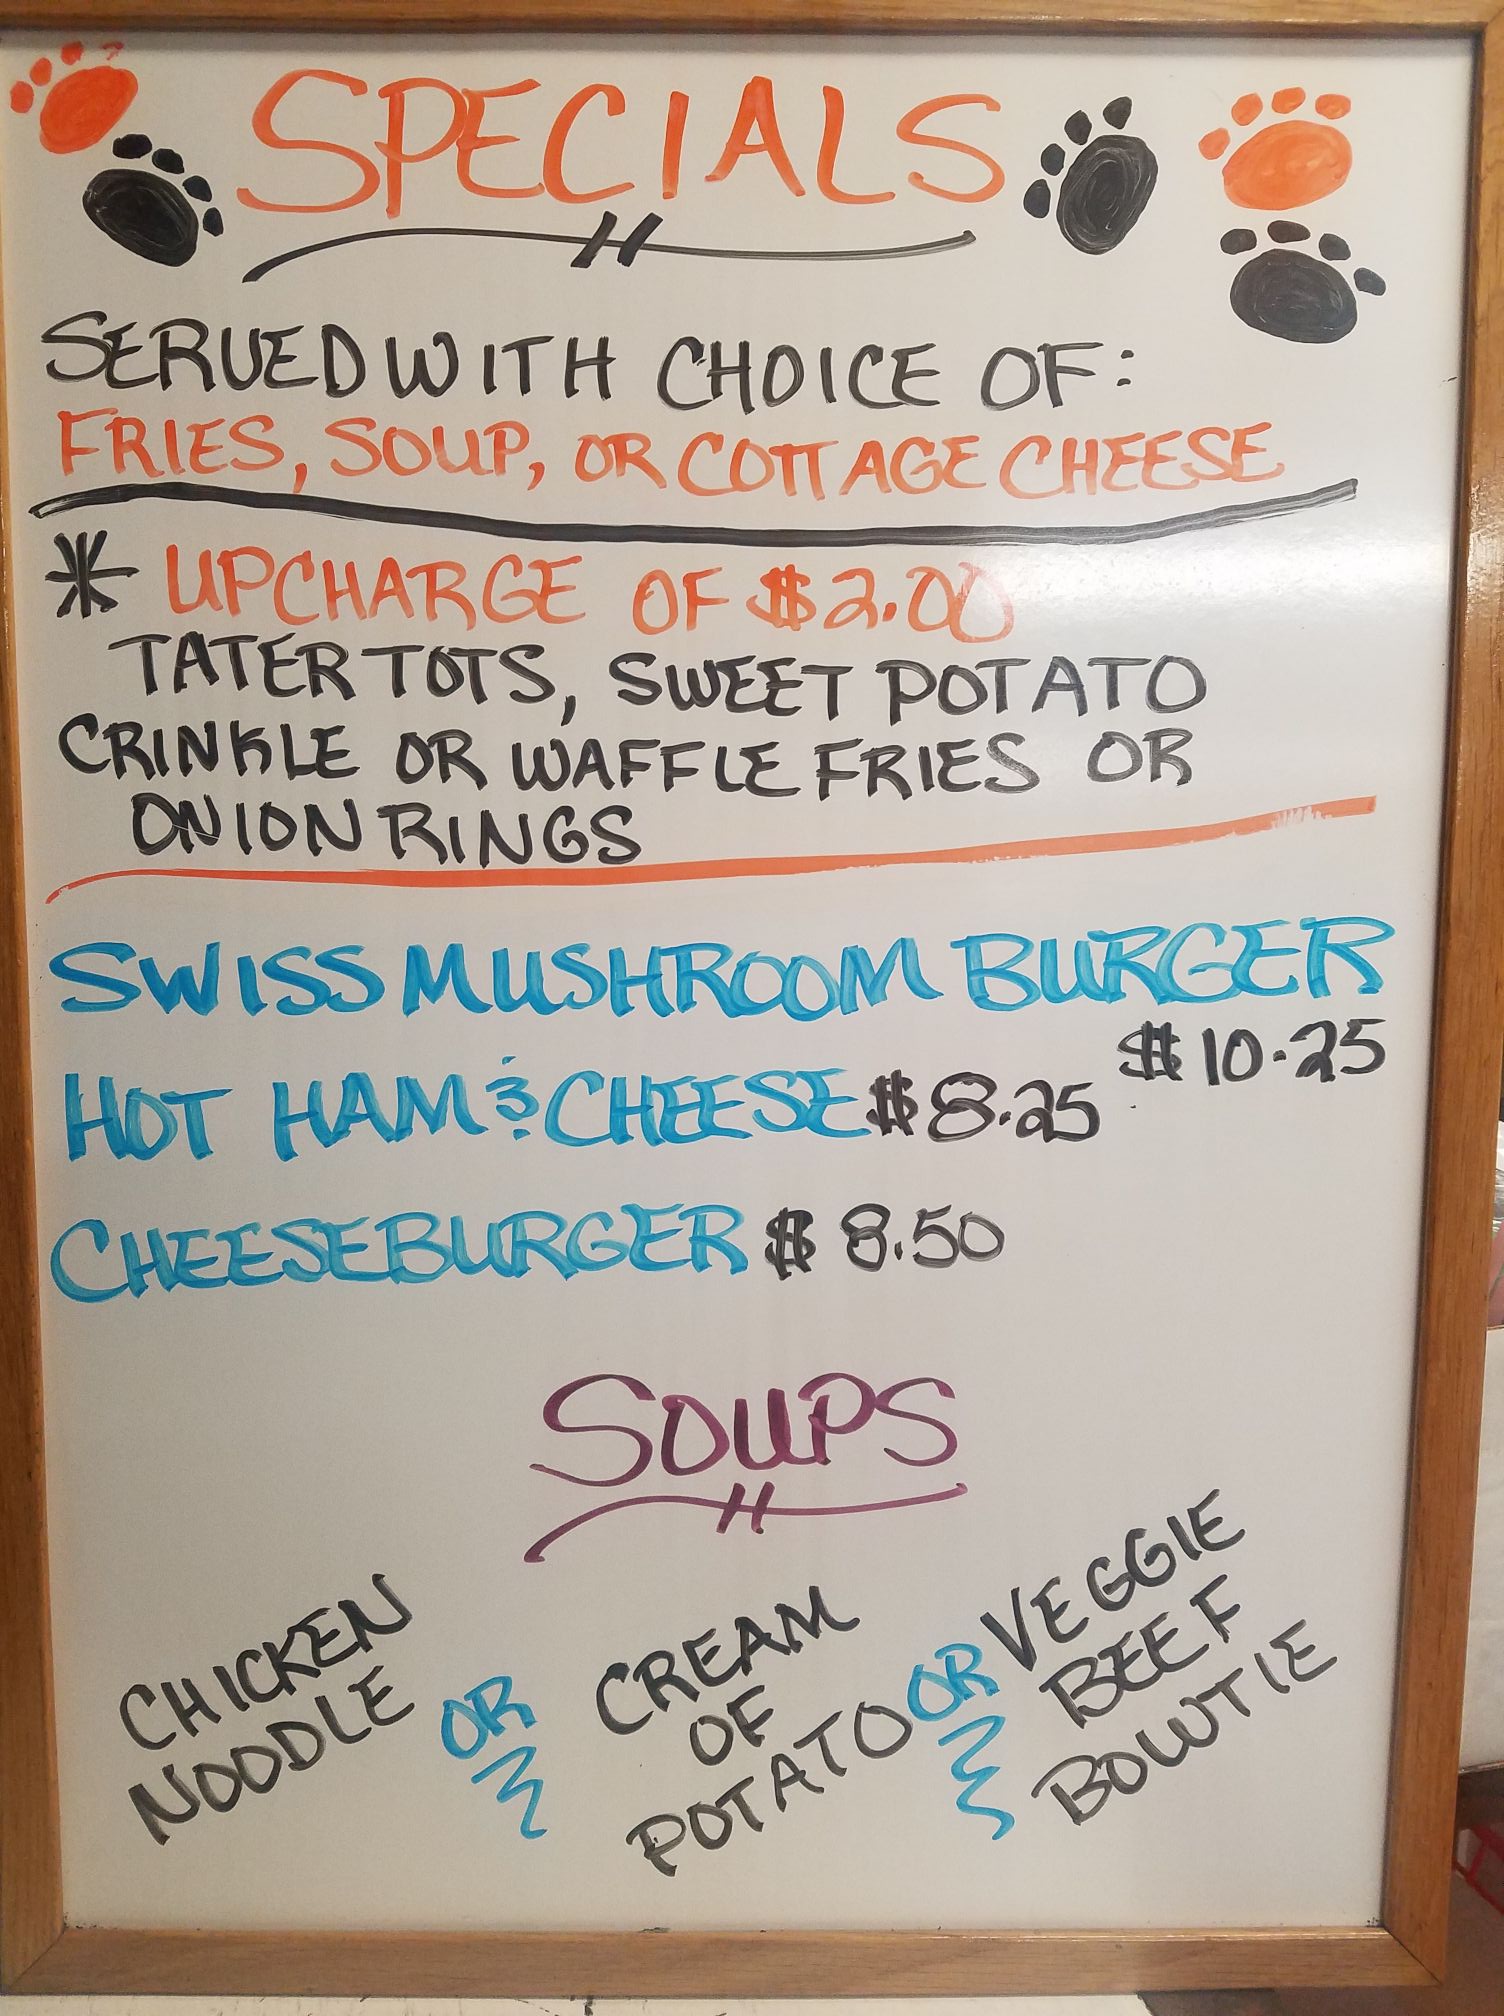 SPECIALS
SERVED WITH CHOICE OF:
FRIES, SOUP, OR COTTAGE CHEESE
* UPCHARGE OF $2.00
TATER TOTS, SWEET POTATO
CRINKLE OR WAFFLE FRIES OR
ONION RINGS
SWISS MUSHROOM BURGER
$10.25
HOT HAM & CHEESE $8.25
CHEESEBURGER $8.50
SOUPS
CHICKEN
NOODLE
OR
CREAM
OF
POTATO
OR
VEGGIE
BEEF
BOWTIE